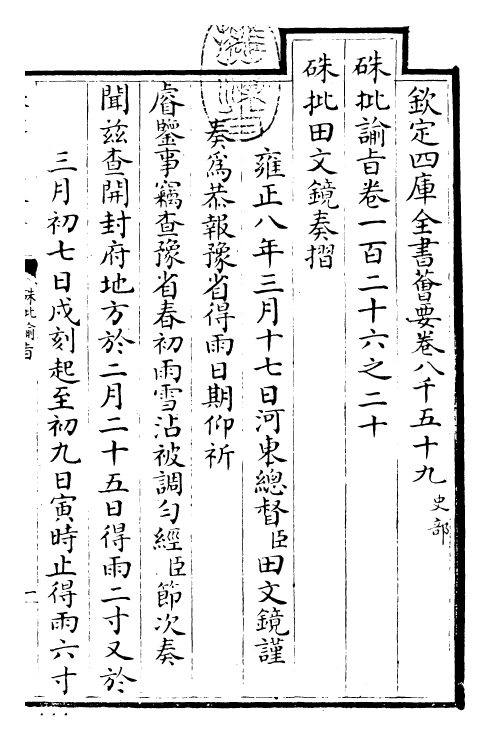 欽定四庫全書薈要卷八千五十九 史部
硃批諭旨卷一百二十六之二十
硃批田文鏡奏摺
雍正八年三月十七日河東總督臣田文鏡謹
奏爲恭報豫省得雨日期仰祈
睿鑒事竊查豫省春初雨雪沾被調勻經臣節次奏
聞茲查開封府地方於二月二十五日得雨二寸又於
三月初七日戌刻起至初九日寅時止得雨六寸
硃批諭旨
一